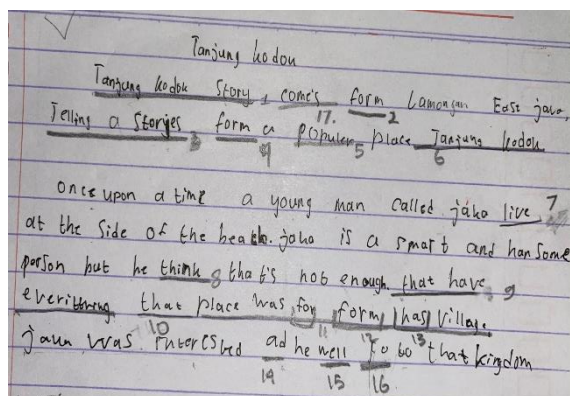 Tanjung kodok
Tanjung kodok story 1 come's form Lamongan East java,
17. 2
Telling a storyes form a populer place Tanjung kodok
3 4 5 6
once upon a time a young man called jaka live 7
at the side of the beach. jaka is a smart and hansome
person but he think 8 that's not enough. that have 9
everithning that place was for form has village.
10 11 12 13
jaka was interested ad he well go to that kingdom
14 15 16